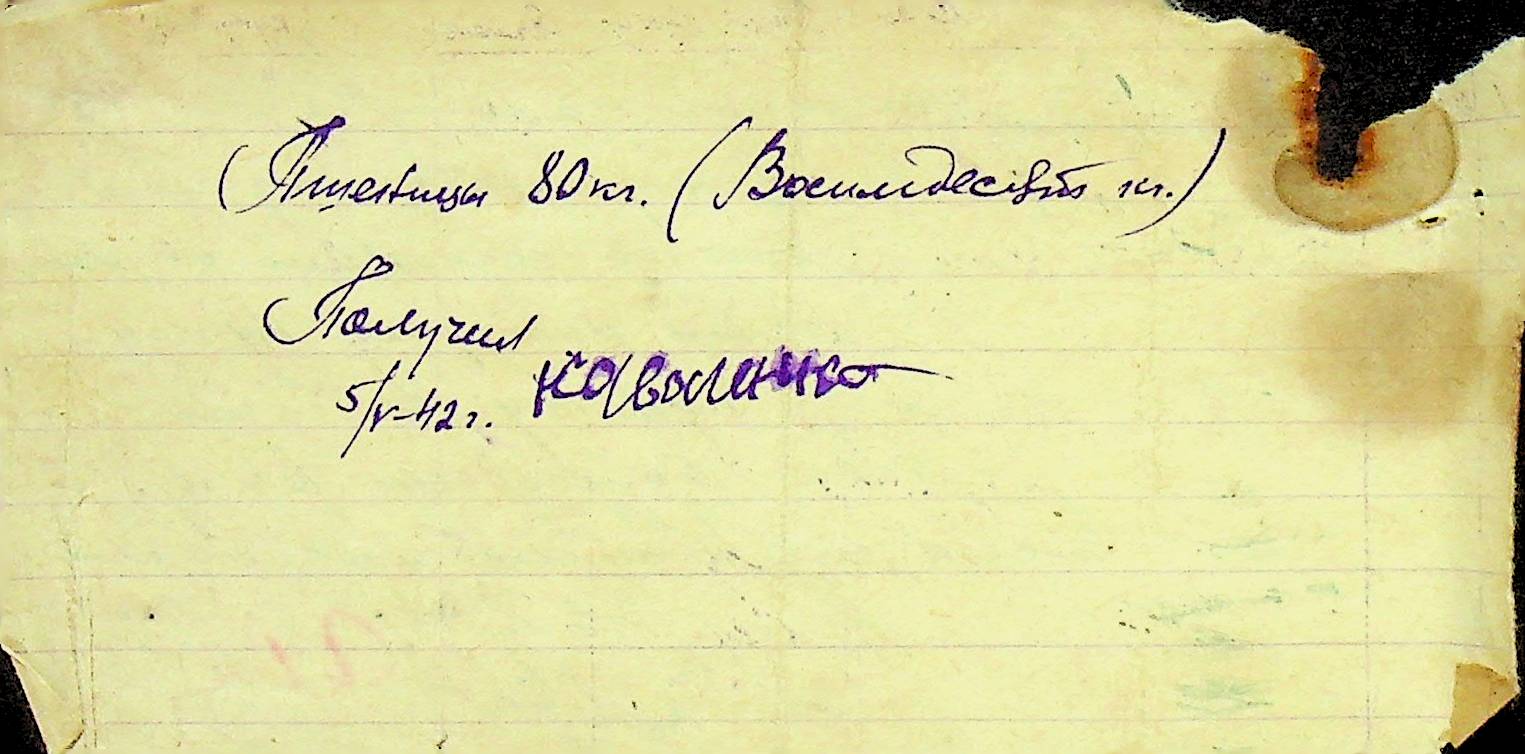 Пшеницы 80 кг. (Восимдесят кг.)
Получил
5/V-42 г. Коваленко